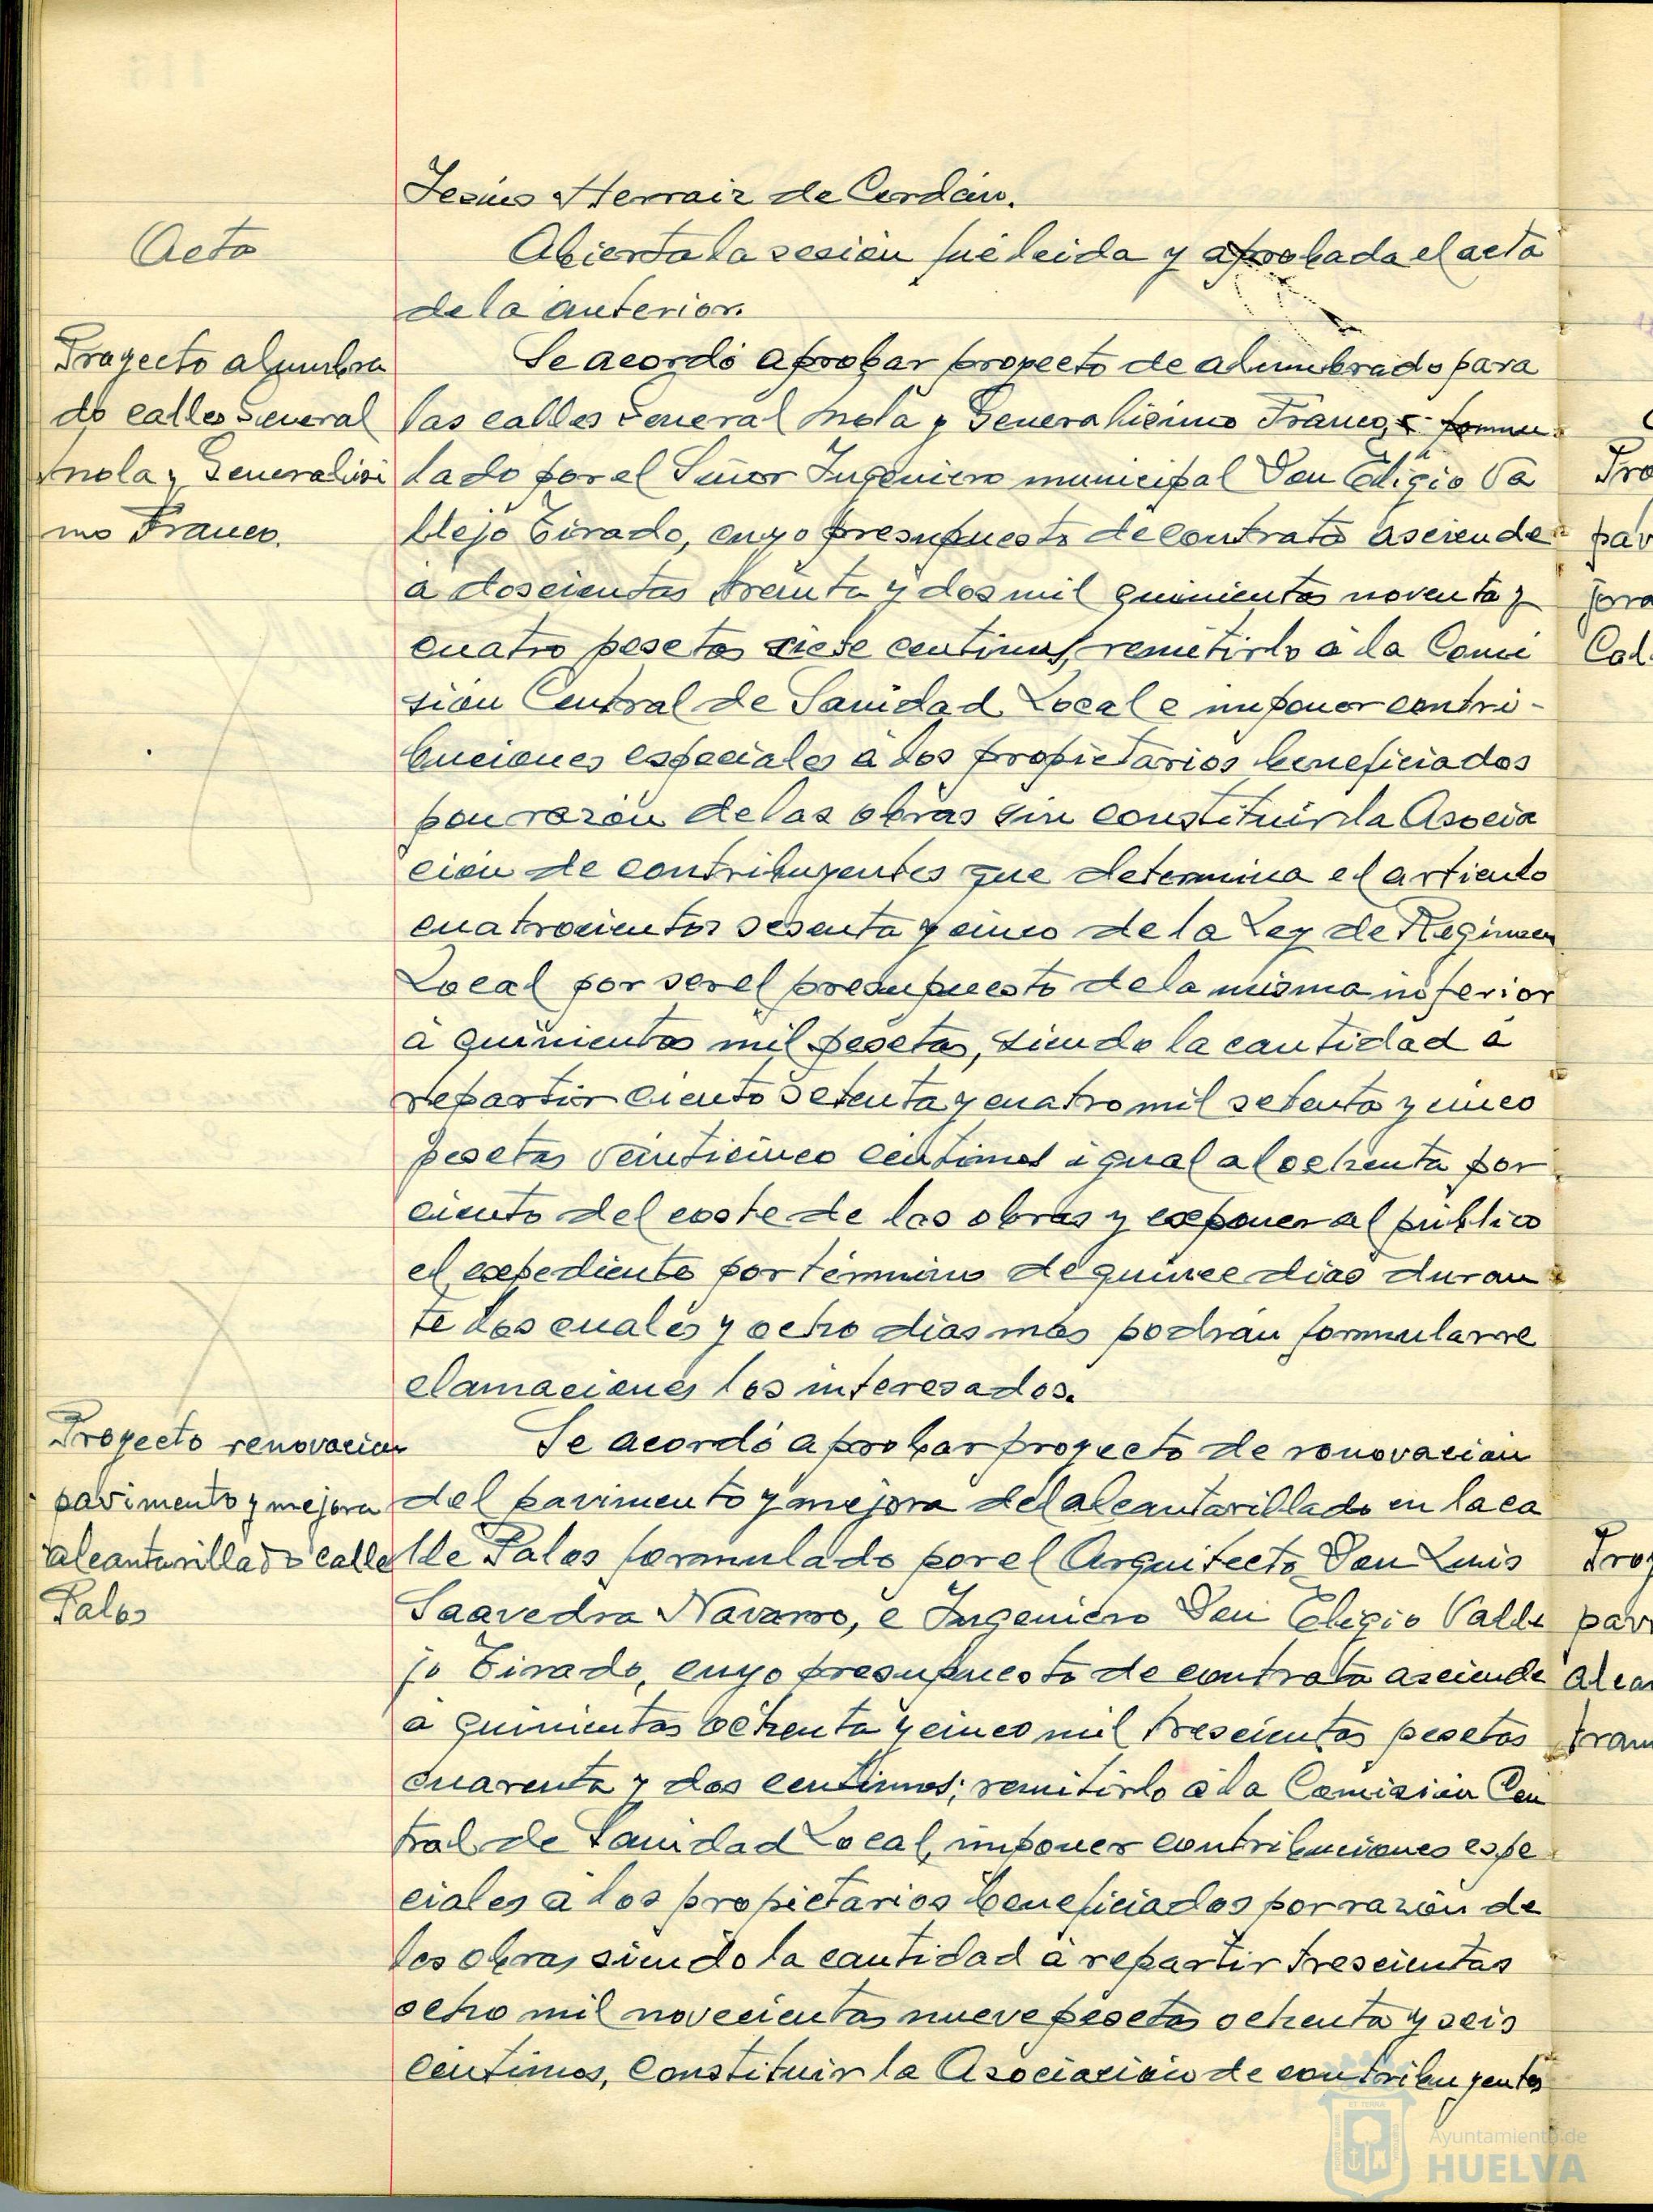 Jesús Herraiz de Cerdán.
Acta
Abierta la sesión fué leida y aprobada el acta
de la anterior.
Proyecto alumbra
do calles General
Mola y Generalisi
mo Franco.
Se acordó aprobar proyecto de alumbrado para
las calles General Mola y Generalisimo Franco, formu
lado por el Señor Ingeniero municipal Don Eligio Va
llejo Tirado, cuyo presupuesto de contrata asciende
a doscientas treinta y dos mil quinientas noventa y
cuatro pesetas siete centimos, remitirlo á la Comi
sión Central de Sanidad Local e imponer contri-
buciones especiales á los propietarios beneficiados
por razón de las obras sin constituir la Asocia
ción de contribuyentes que determina el articulo
cuatrocientos sesenta y cinco de la Ley de Regimen
Local por ser el presupuesto de la misma inferior
á quinientas mil pesetas, siendo la cantidad á
repartir ciento setenta y cuatro mil setenta y cinco
pesetas veinticinco centimos igual al ochenta por
ciento del coste de las obras y exponer al público
el expediente por término de quince dias duran
te los cuales y ocho dias más podrán formular re
clamaciones los interesados.
Proyecto renovacion
pavimento y mejora
alcantarillado calle
Palos
Se acordó aprobar proyecto de renovación
del pavimento y mejora del alcantarillado en la ca
lle Palos formulado por el Arquitecto Don Luis
Saavedra Navarro, e Ingeniero Don Eligio Valle
jo Tirado, cuyo presupuesto de contrata asciende
a quinientas ochenta y cinco mil trescientas pesetas
cuarenta y dos centimos; remitirlo á la Comisión Cen
tral de Sanidad Local, imponer contribuciones espe
ciales á los propietarios beneficiados por razón de
las obras siendo la cantidad á repartir trescientas
ocho mil novecientas nueve pesetas ochenta y seis
centimos, constituir la Asociación de contribuyentes
Pro
pav
jora
Cal
Proy
pavi
alcan
tram
Ayuntamiento de
HUELVA